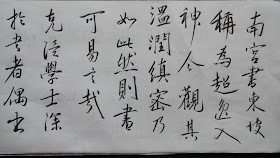 南宫書東坡
稱為超逸入
神今觀其
溫潤縝密乃
如此然則書
可易言哉
克溫學士深
於書者偶出